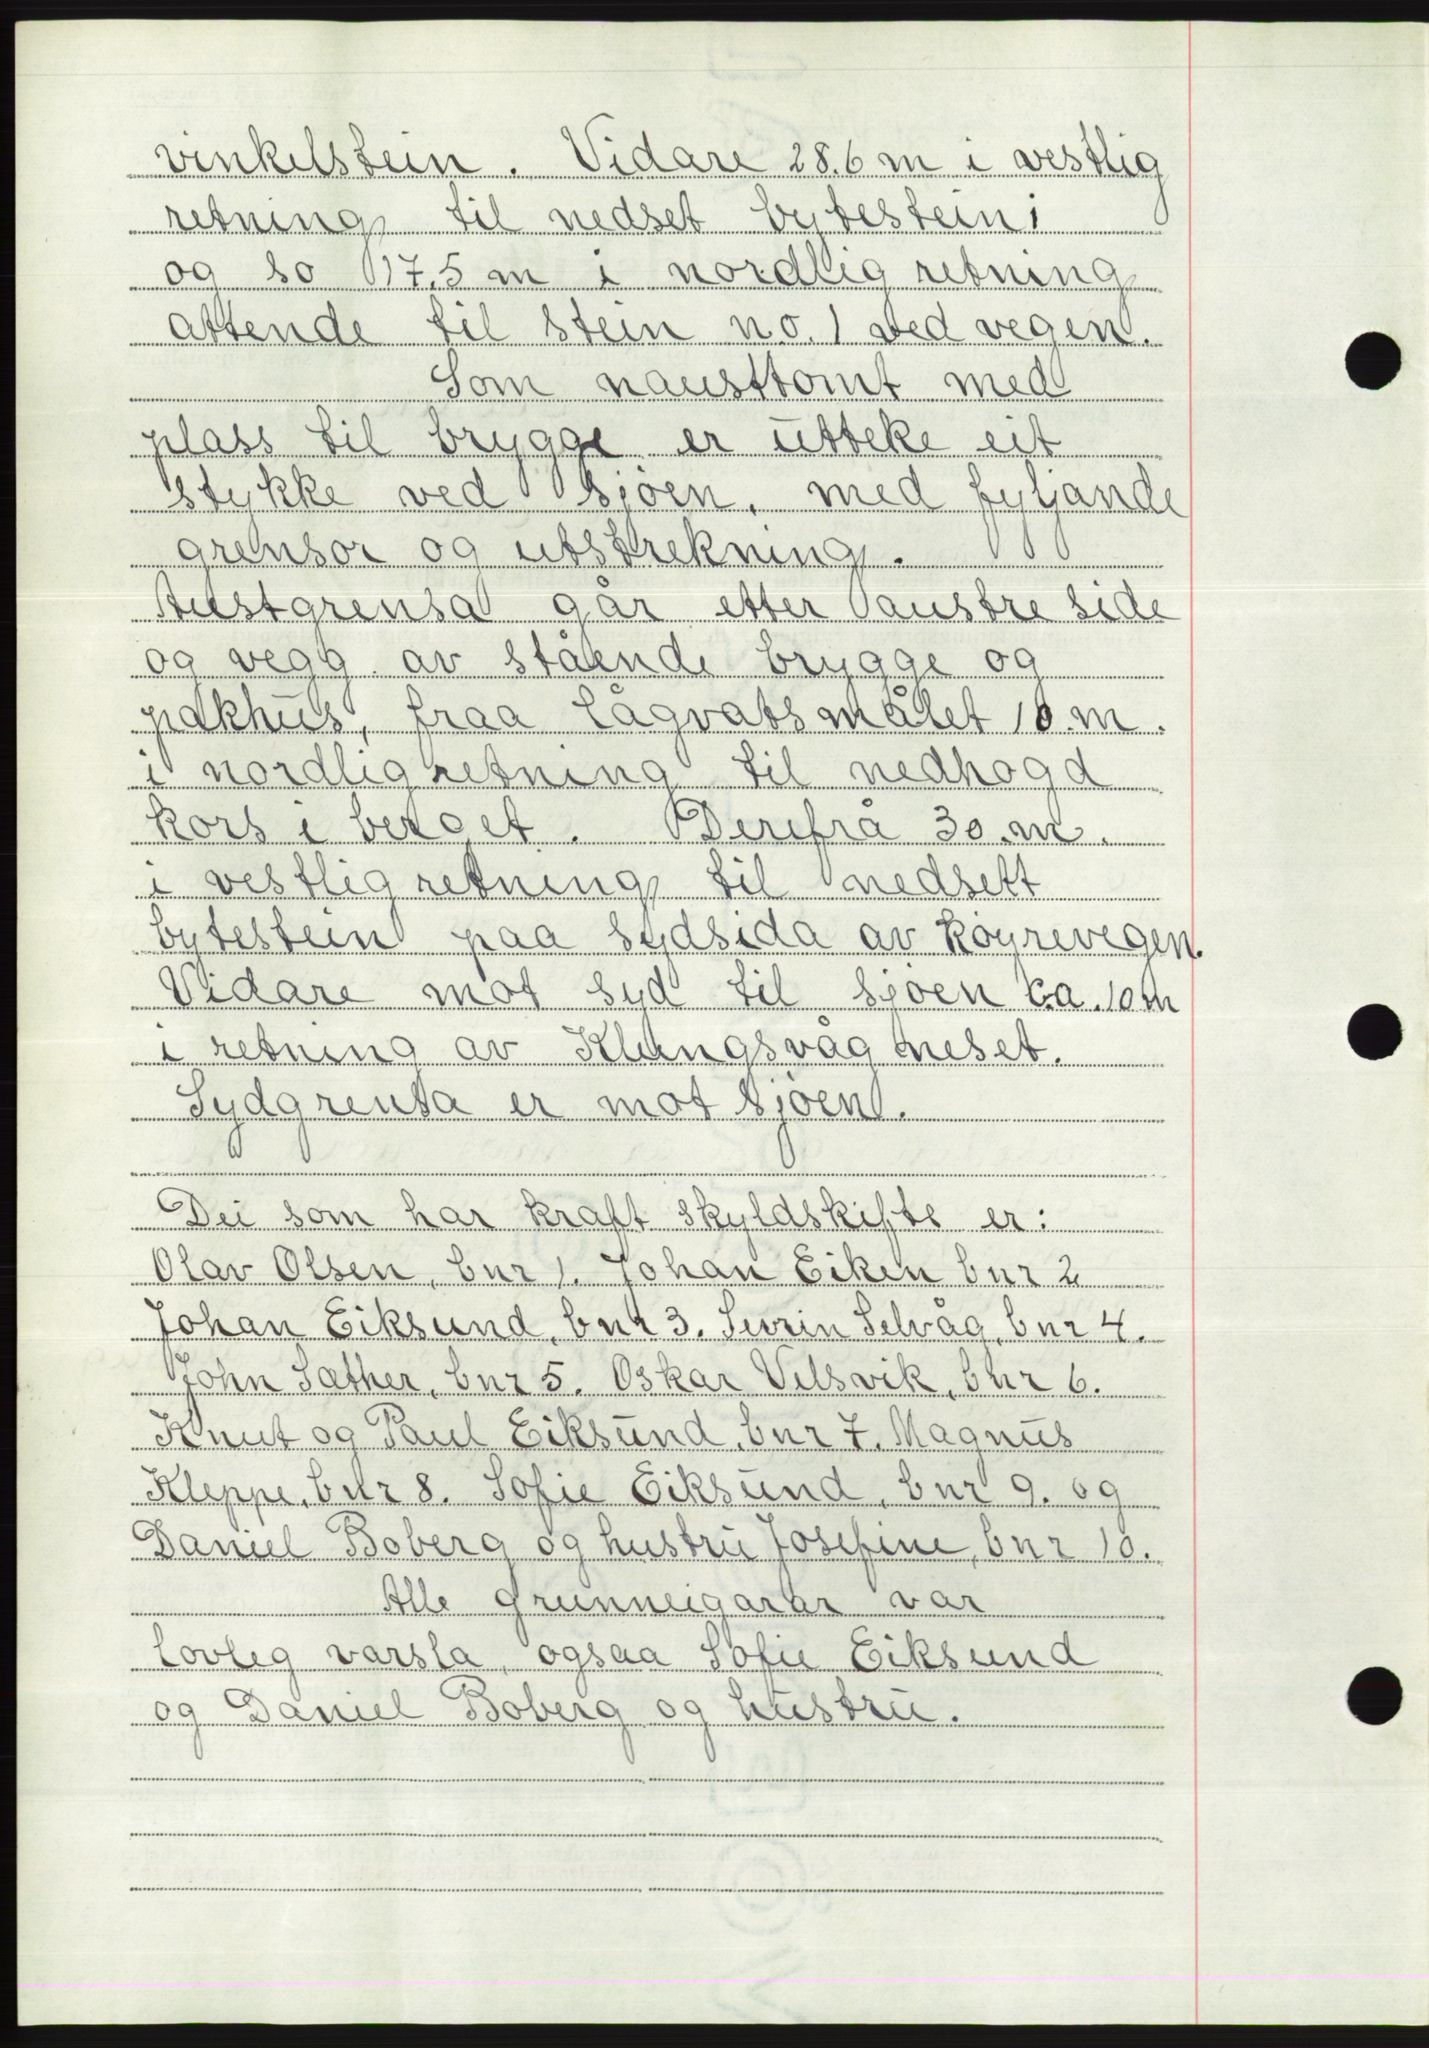 vinkelstein. Vidare 28.6 m i vestlig
retning til nedset bytestein;
og so 17.5 m i nordlig retning
attende til stein no. 1 ved vegen.
Som nausttomt med
plass til brygge er utteke eit
stykke ved sjøen, med fyljande
grensor og utstrekning.
Austgrensa går etter austre side
og vegg av stående brygge og
pakhus, fraa lågvatsmålet 10 m.
i nordlig retning til nedhogd
kors i berget. Derifrå 30 m.
i vestlig retning til nedsett
bytestein paa sydsida av køyrevegen.
Vidare mot syd til sjøen ca. 10 m
i retning av Klungsvågneset.
Sydgrensa er mot sjøen.
Dei som har kraft skyldskifte er:
Olav Olsen, bnr 1. Johan Eiken bnr 2
Johan Eiksund, bnr 3. Sevrin Selvåg, bnr 4.
John Sæther, bnr 5. Oskar Velsvik, bnr 6.
Knut og Paul Eiksund, bnr 7. Magnus
Kleppe, bnr 8. Sofie Eiksund, bnr 9. og
Daniel Boberg og hustru Josefine, bnr 10.
Alle grunneigarar var
lovleg varsla, ogsaa Sofie Eiksund
og Daniel Boberg og hustru.